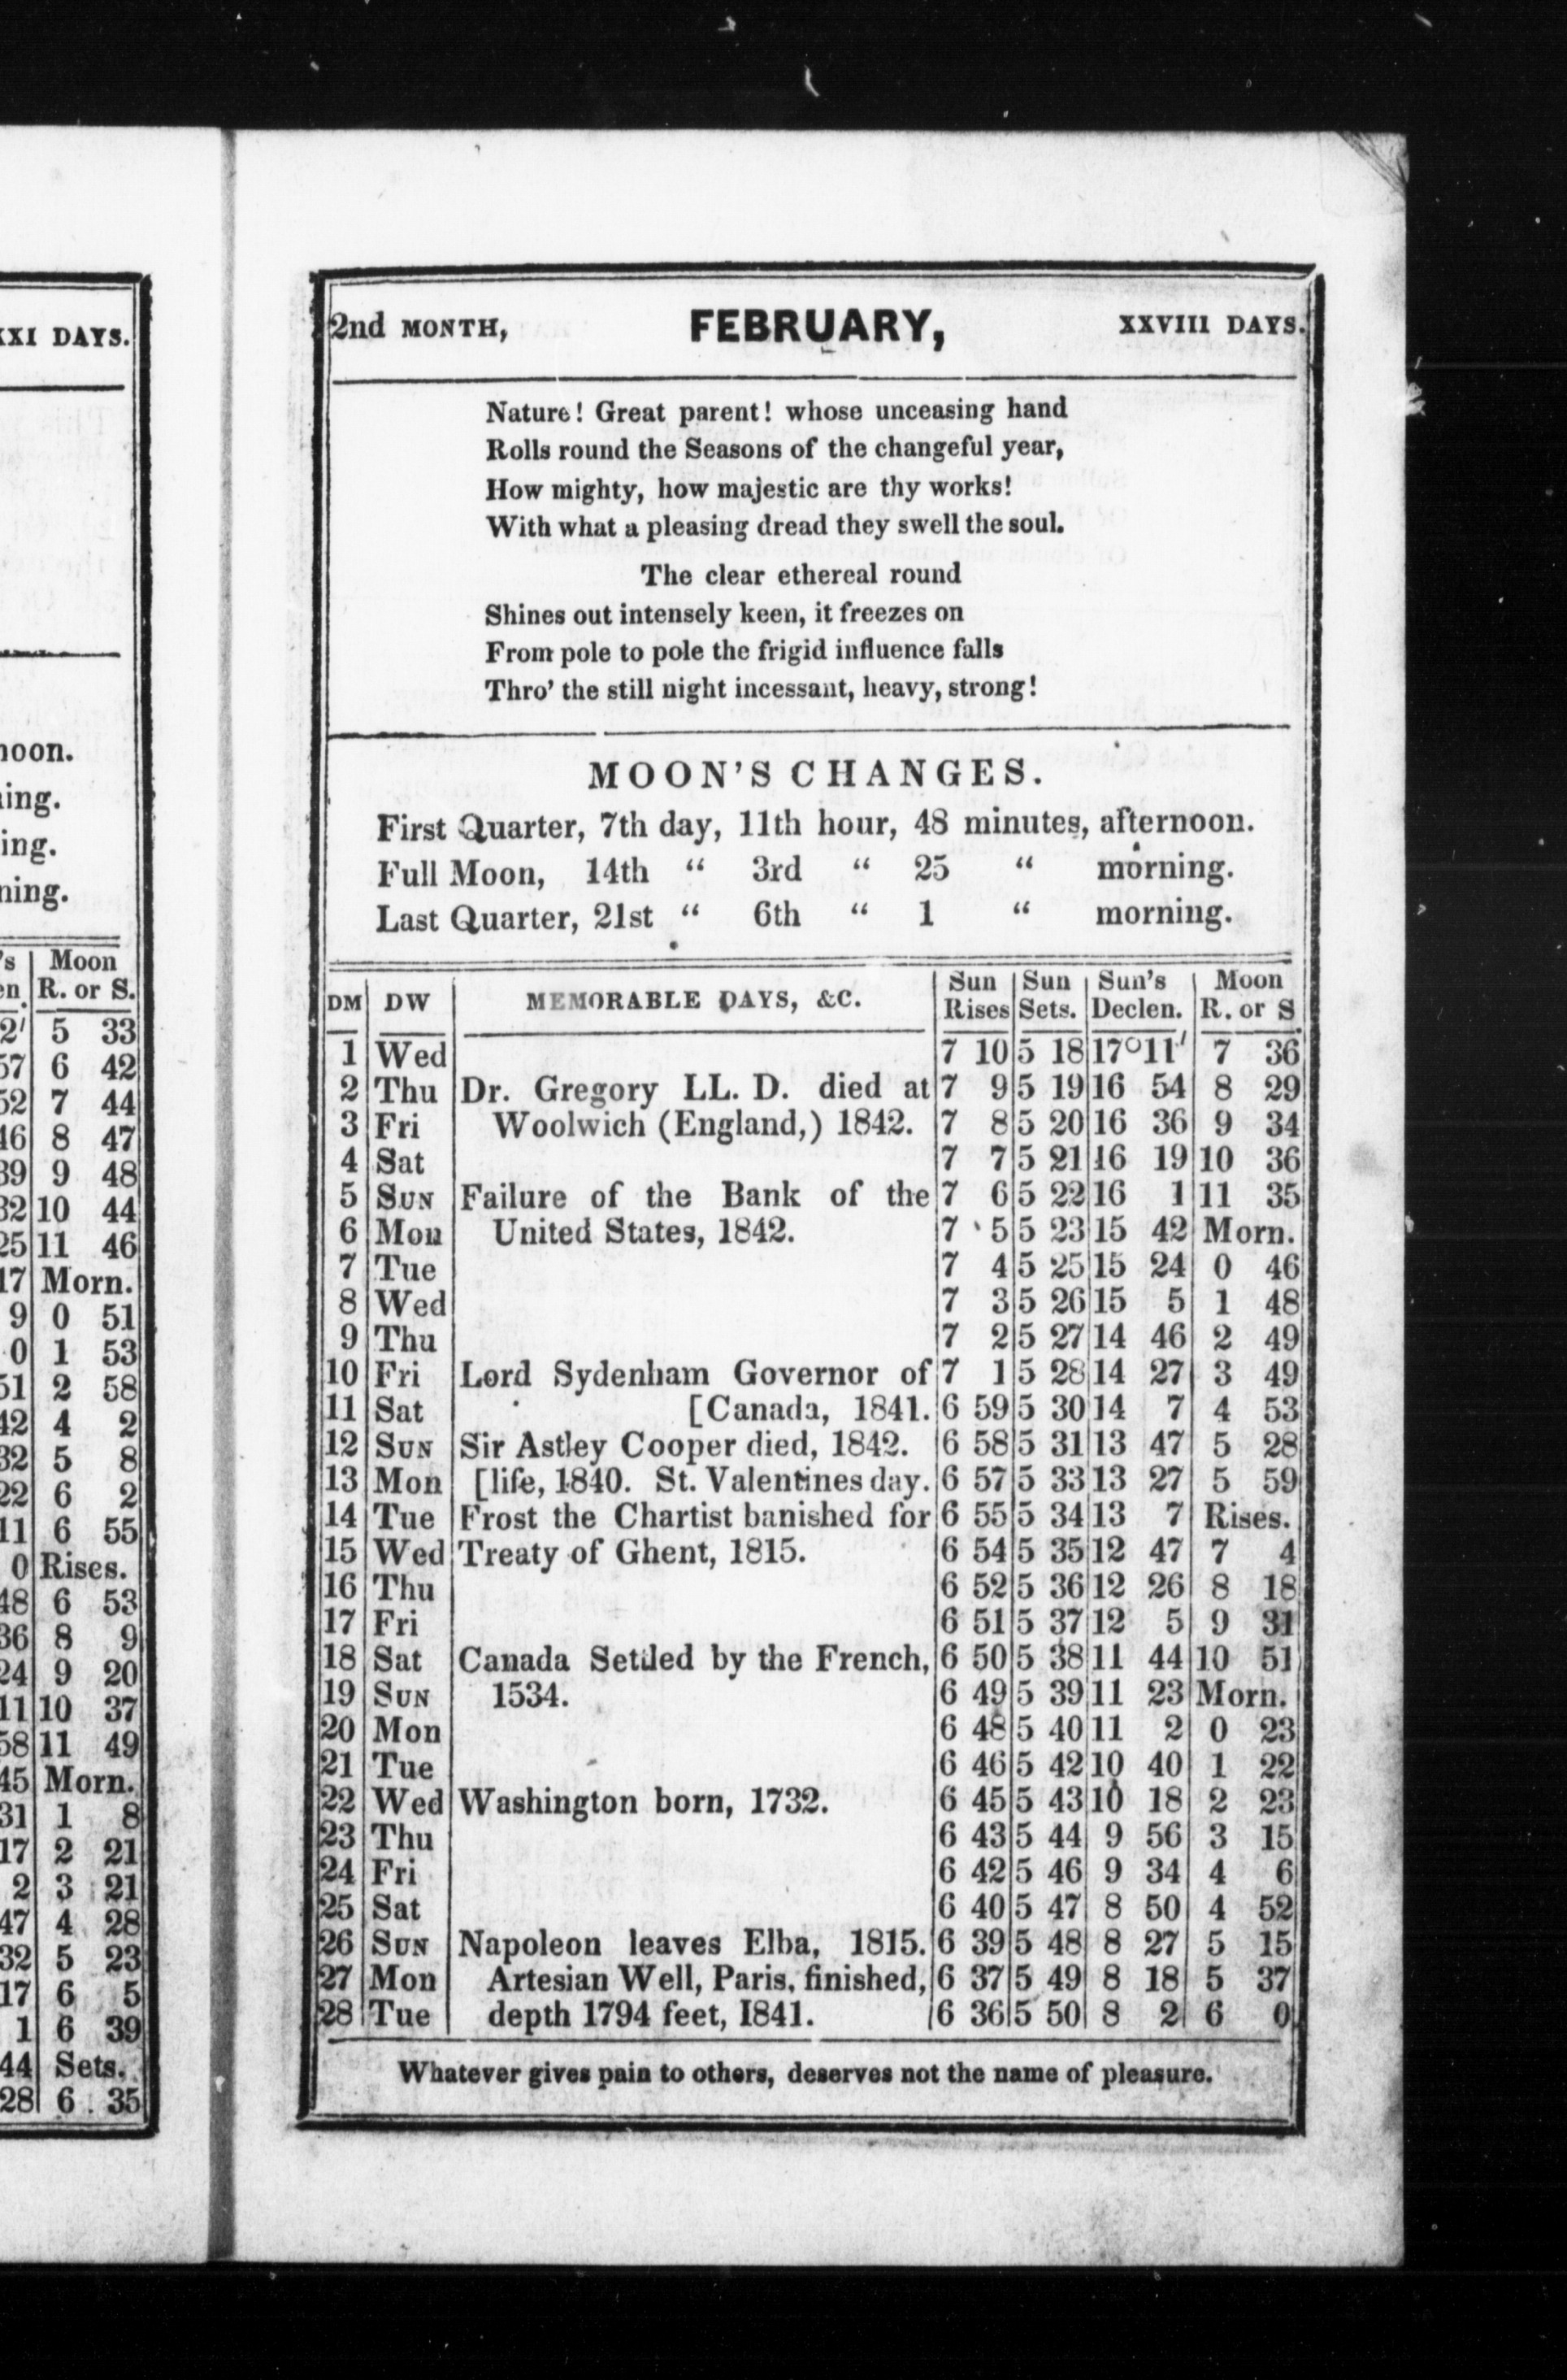 XXI DAYS.
noon.
ning.
ing.
ning.
's | Moon
en. | R. or S.
2' | 5 33
57 | 6 42
52 | 7 44
46 | 8 47
39 | 9 48
32 | 10 44
25 | 11 46
17 | Morn.
9 | 0 51
0 | 1 53
51 | 2 58
42 | 4 2
32 | 5 8
22 | 6 2
11 | 6 55
0 | Rises.
48 | 6 53
36 | 8 9
24 | 9 20
11 | 10 37
58 | 11 49
45 | Morn.
31 | 1 8
17 | 2 21
2 | 3 21
47 | 4 28
32 | 5 23
17 | 6 5
1 | 6 39
44 | Sets.
28 | 6 35
2nd MONTH, FEBRUARY, XXVIII DAYS.
Nature! Great parent! whose unceasing hand
Rolls round the Seasons of the changeful year,
How mighty, how majestic are thy works!
With what a pleasing dread they swell the soul.
The clear ethereal round
Shines out intensely keen, it freezes on
From pole to pole the frigid influence falls
Thro' the still night incessant, heavy, strong!
MOON'S CHANGES.
First Quarter, 7th day, 11th hour, 48 minutes, afternoon.
Full Moon, 14th “ 3rd “ 25 “ morning.
Last Quarter, 21st “ 6th “ 1 “ morning.
DM | DW | MEMORABLE DAYS, &C. | Sun Rises | Sun Sets. | Sun's Declen. | Moon R. or S.
1 | Wed | | 7 10 | 5 18 | 17°11' | 7 36
2 | Thu | Dr. Gregory LL. D. died at | 7 9 | 5 19 | 16 54 | 8 29
3 | Fri | Woolwich (England,) 1842. | 7 8 | 5 20 | 16 36 | 9 34
4 | Sat | | 7 7 | 5 21 | 16 19 | 10 36
5 | SUN | Failure of the Bank of the | 7 6 | 5 22 | 16 1 | 11 35
6 | Mon | United States, 1842. | 7 5 | 5 23 | 15 42 | Morn.
7 | Tue | | 7 4 | 5 25 | 15 24 | 0 46
8 | Wed | | 7 3 | 5 26 | 15 5 | 1 48
9 | Thu | | 7 2 | 5 27 | 14 46 | 2 49
10 | Fri | Lord Sydenham Governor of | 7 1 | 5 28 | 14 27 | 3 49
11 | Sat | [Canada, 1841. | 6 59 | 5 30 | 14 7 | 4 53
12 | SUN | Sir Astley Cooper died, 1842. | 6 58 | 5 31 | 13 47 | 5 28
13 | Mon | [life, 1840. St. Valentines day. | 6 57 | 5 33 | 13 27 | 5 59
14 | Tue | Frost the Chartist banished for | 6 55 | 5 34 | 13 7 | Rises.
15 | Wed | Treaty of Ghent, 1815. | 6 54 | 5 35 | 12 47 | 7 4
16 | Thu | | 6 52 | 5 36 | 12 26 | 8 18
17 | Fri | | 6 51 | 5 37 | 12 5 | 9 31
18 | Sat | Canada Settled by the French, | 6 50 | 5 38 | 11 44 | 10 51
19 | SUN | 1534. | 6 49 | 5 39 | 11 23 | Morn.
20 | Mon | | 6 48 | 5 40 | 11 2 | 0 23
21 | Tue | | 6 46 | 5 42 | 10 40 | 1 22
22 | Wed | Washington born, 1732. | 6 45 | 5 43 | 10 18 | 2 23
23 | Thu | | 6 43 | 5 44 | 9 56 | 3 15
24 | Fri | | 6 42 | 5 46 | 9 34 | 4 6
25 | Sat | | 6 40 | 5 47 | 8 50 | 4 52
26 | SUN | Napoleon leaves Elba, 1815. | 6 39 | 5 48 | 8 27 | 5 15
27 | Mon | Artesian Well, Paris, finished, | 6 37 | 5 49 | 8 18 | 5 37
28 | Tue | depth 1794 feet, 1841. | 6 36 | 5 50 | 8 2 | 6 0
Whatever gives pain to others, deserves not the name of pleasure.